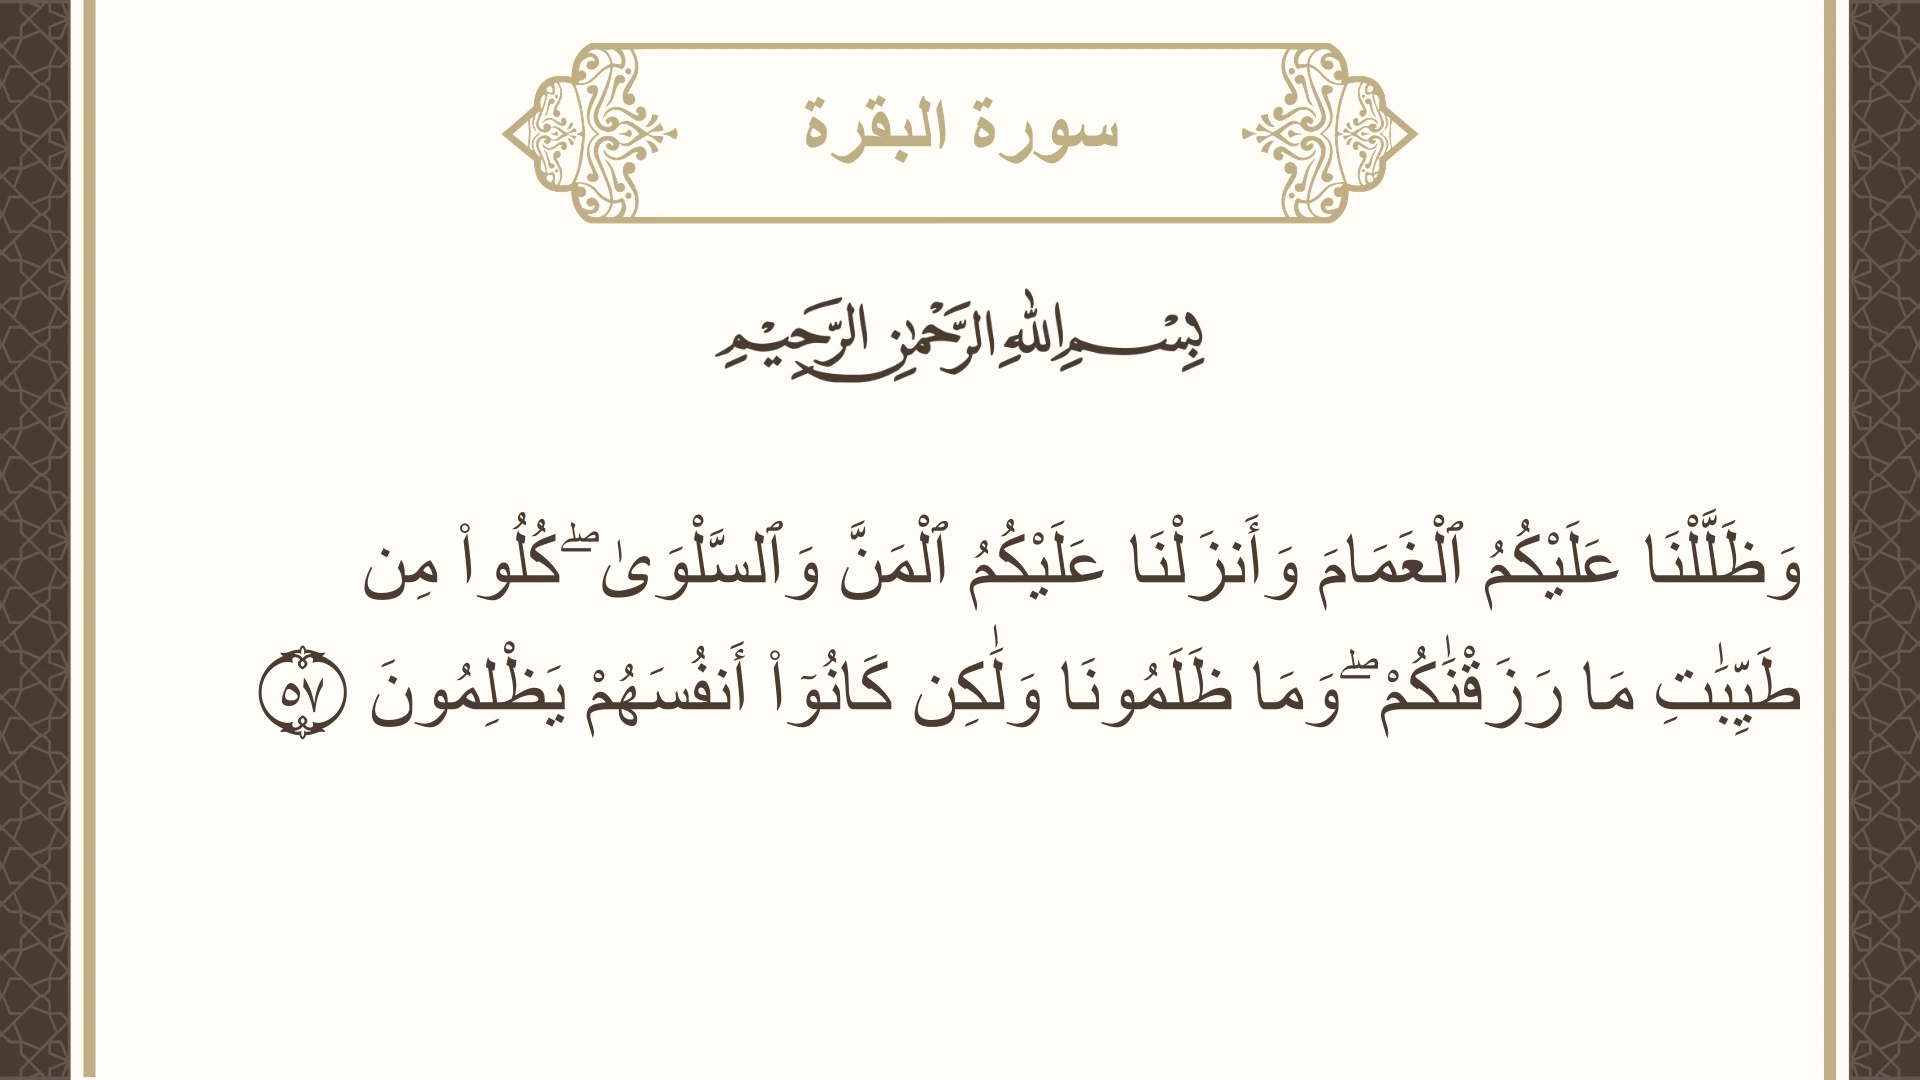 سورة البقرة
بِسْمِ اللهِ الرَّحْمٰنِ الرَّحِيْمِ
وَظَلَّلْنَا عَلَيْكُمُ ٱلْغَمَامَ وَأَنزَلْنَا عَلَيْكُمُ ٱلْمَنَّ وَٱلسَّلْوَىٰ ۖ كُلُوا۟ مِن
طَيِّبَـٰتِ مَا رَزَقْنَـٰكُمْ ۖ وَمَا ظَلَمُونَا وَلَـٰكِن كَانُوٓا۟ أَنفُسَهُمْ يَظْلِمُونَ ٥٧